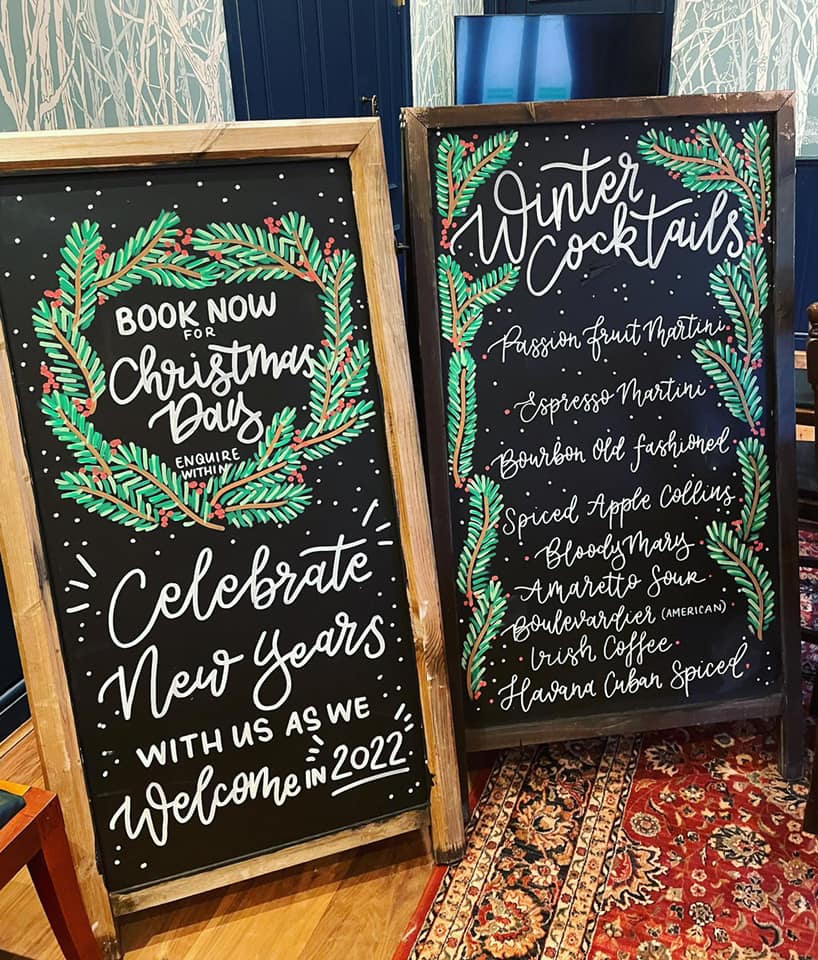 BOOK NOW
FOR
Christmas
Day
ENQUIRE
WITHIN
Celebrate
New Years
WITH US AS WE
Welcome IN 2022
Winter
Cocktails
Passion fruit Martini
Espresso Martini
Bourbon Old fashioned
Spiced Apple Collins
Bloody Mary
Amaretto Sour
Boulevardier (AMERICAN)
Irish Coffee
Havana Cuban Spiced